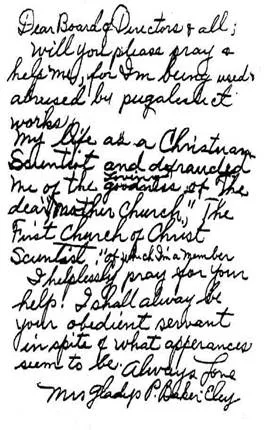 Dear Board of Directors & all;
Will you please pray &
help me, for I'm being used &
abused by pugalistict
works,
My life as a Christian
Scientist and defrauded
me of the goodness, of The
dear "Mother Church," The
First Church of Christ
Scientist; of which I'm a member
I helplessly pray for your
help. I shall alway be
your obedient servant
in spite of what apperances
seem to be. Always Love
Mrs Gladys P. Baker Eley